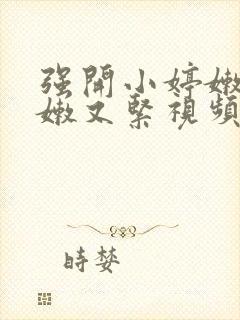 强開小婷嫩
嫩又緊視頻
時婪